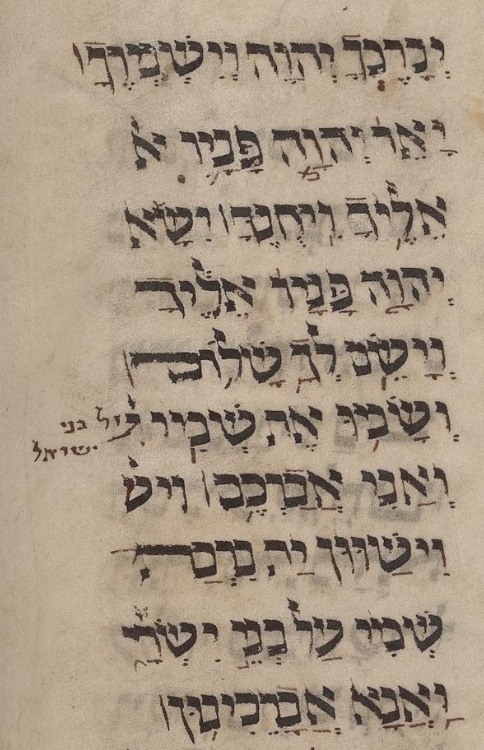 יְבָרֶכְךָ יְהוָה וְיִשְׁמְרֶךָ
יָאֵר יְהוָה פָּנָיו א
אֵלֶיךָ וִיחֻנֶּךָ יִשָּׂא
יְהוָה פָּנָיו אֵלֶיךָ
וְיָשֵׂם לְךָ שָׁלוֹם
וְשָׂמוּ אֶת שְׁמִי על בני
ישראל
וַאֲנִי אֲבָרֲכֵם ויש
וִישַׁוּוּן יַת בִּרְכַּת
שְׁמִי עַל בְּנֵי יִשְׂרָ
וַאֲנָא אֲבָרֵיכִינּוּן